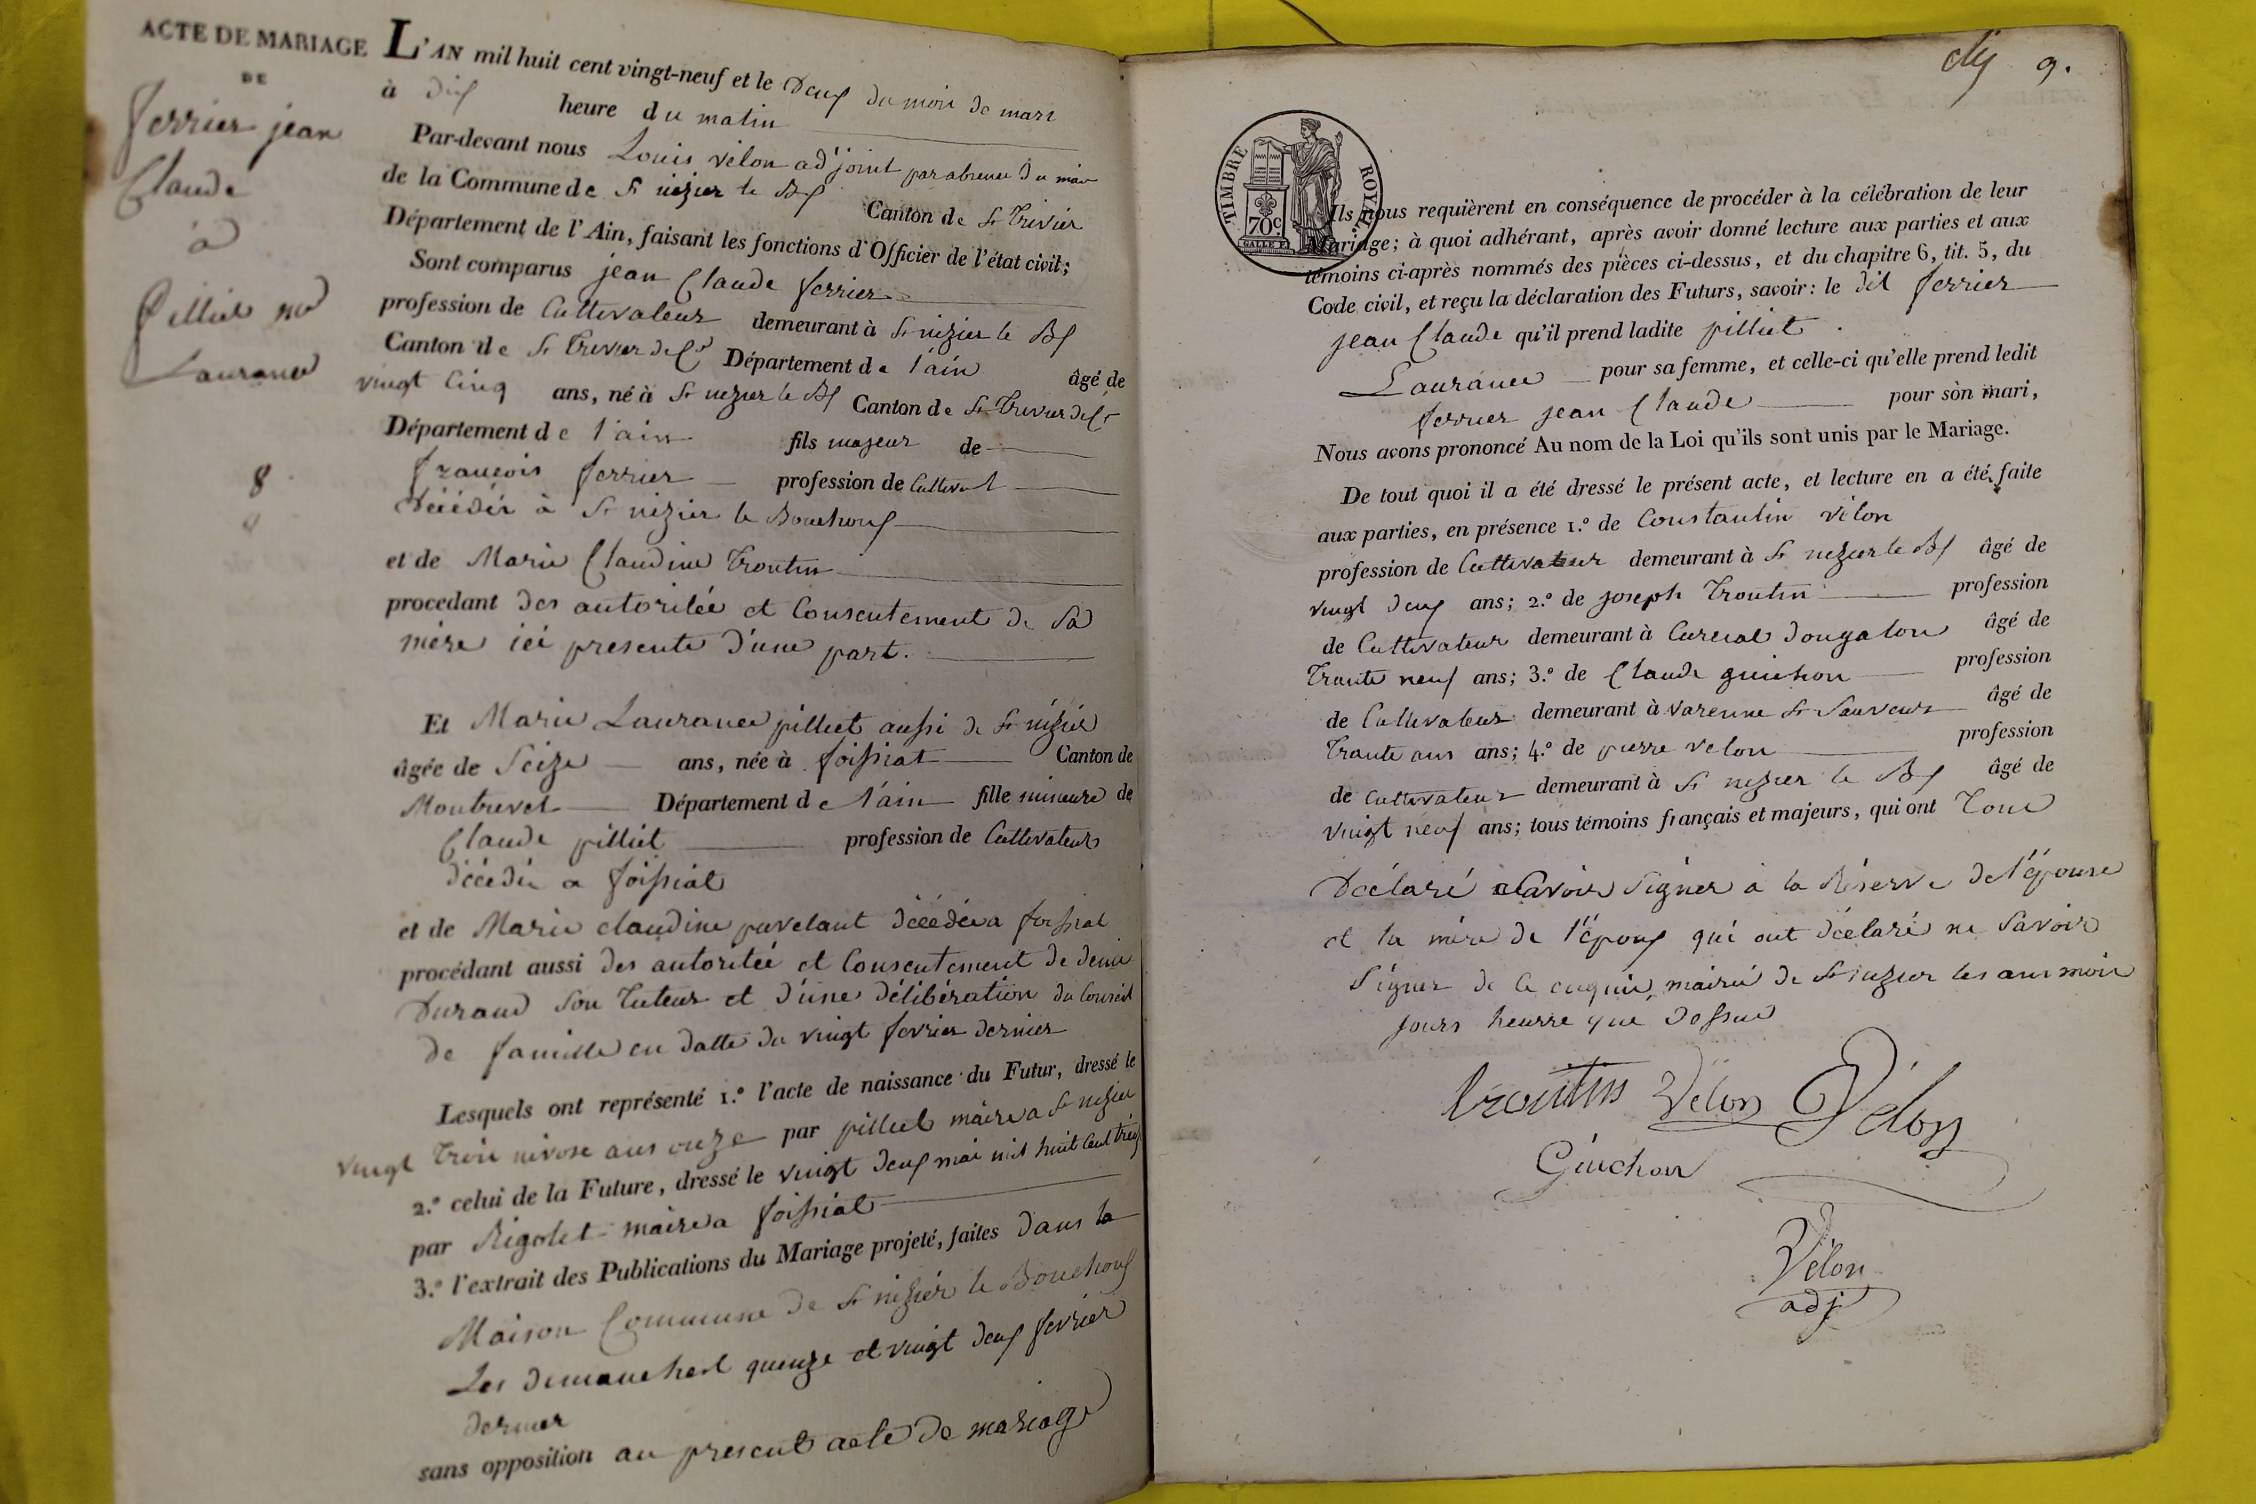 ACTE DE MARIAGE
DE
ferrier jean
Claude
à
pilliet m
Laurance
8
L'AN mil huit cent vingt-neuf et le Deux du moi de mars
à dix heure du matin
Par-devant nous Louis vélon ad'joint par absence du mair
de la Commune de St nizier le Bx Canton de St trivier
Département de l'Ain, faisant les fonctions d'Officier de l'état civil;
Sont comparus jean Claude ferrier
profession de Cultivateur demeurant à St nizier le Bx
Canton de St trivier de Cs Département de l'ain âgé de
vingt Cinq ans, né à St nizier le Bx Canton de St trivier de Cs
Département de l'ain fils majeur de
françois ferrier profession de Cultivat
Décédé à St nizier le Bouchoux
et de Marie Claudine troutin
procedant des autoritée et Consentement de Sa
mère ici presente d'une part.
Et Marie Laurance pilliet aussi de St nizier
âgée de Seize ans, née à foissiat Canton de
Montrevel Département de l'ain fille mineure de
Claude pilliet profession de Cultivateur
décédé a foissiat
et de Marie claudine puvelant décédée a foissiat
procédant aussi des autoritée et Consentement de denis
Durand Son tuteur et d'une délibération du Conseil
de famille en datte du vingt fevrier dernier
Lesquels ont représenté 1.° l'acte de naissance du Futur, dressé le
vingt trois nivose ans onze par pilliet maire a St nizier
2.° celui de la Future, dressé le vingt deux mai mil huit Cent treiz
par Rigolet maire a foissiat
3.° l'extrait des Publications du Mariage projeté, faites dans la
Maison Commune de St nizier le Bouchoux
Les dimanchest quenze et vingt deux fevrier
dernier
sans opposition au present acte de mariage
9.
TIMBRE ROYAL
70c
Ils nous requièrent en conséquence de procéder à la célébration de leur
Mariage; à quoi adhérant, après avoir donné lecture aux parties et aux
témoins ci-après nommés des pièces ci-dessus, et du chapitre 6, tit. 5, du
Code civil, et reçu la déclaration des Futurs, savoir: le dit ferrier
jean Claude qu'il prend ladite pilliet
Laurance pour sa femme, et celle-ci qu'elle prend ledit
ferrier jean Claude pour son mari,
Nous avons prononcé Au nom de la Loi qu'ils sont unis par le Mariage.
De tout quoi il a été dressé le présent acte, et lecture en a été faite
aux parties, en présence 1.° de Constantin vélon
profession de Cultivateur demeurant à St nizier le Bx âgé de
vingt deux ans; 2.° de joseph troutin profession
de Cultivateur demeurant à Curciat dongalon âgé de
trante neuf ans; 3.° de Claude guichon profession
de Cultivateur demeurant à varenne St Sauveur âgé de
trante ans ans; 4.° de pierre velon profession
de Cultivateur demeurant à St nizier le Bx âgé de
vingt neuf ans; tous témoins français et majeurs, qui ont tous
Déclaré Savoir Signer à la Réserve de l'épouse
et la mère de l'époux qui ont déclaré ne Savoir
Signer de ce enquir mairie de St nizier les ans mois
jours heurre que dessus
troutin Vélon Vélon
Guichon
Vélon
adj